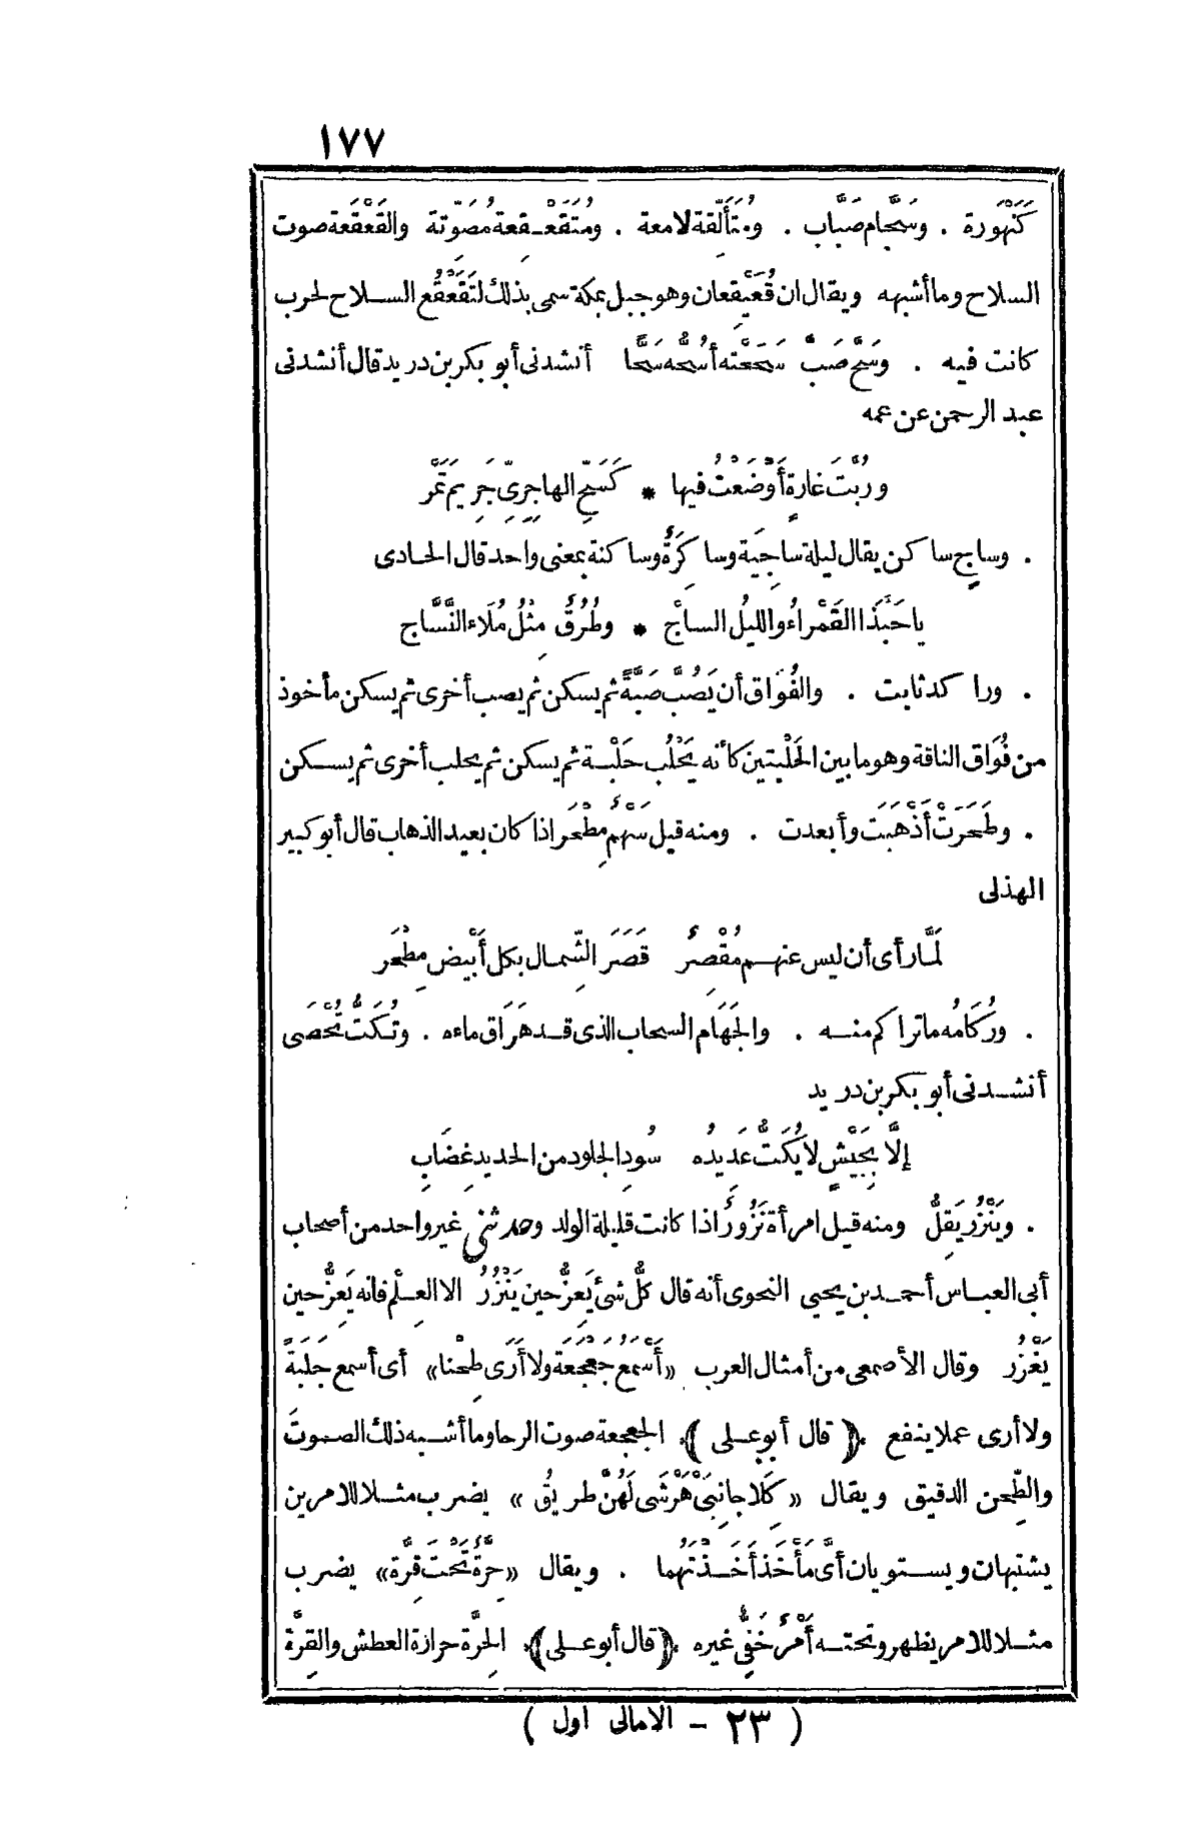 ١٧٧
كَنَهْوَرة . وسَجَّام صَبَّاب . ومُتَأَلِّقة لامعة . ومُتَقَعْـقِعة مُصَوِّتة والقَعْقَعة صوت
السلاح وما أشبهه ويقال ان قُعَيْقِعان وهو جبل بمكة سمى بذلك لتَقَعْقُع السـلاح لحرب
كانت فيه . وسَحٌّ صَبٌّ سَحَحْته أسُحُّه سَحًّا أنشدنى أبو بكر بن دريد قال أنشدنى
عبد الرحمن عن عمه
ورُبَّتَ غارةٍ أَوْضَعْتُ فيها * كَسَحِّ الهاجِرِىِّ جَرِيمَ تَمْر
. وساجٍ ساكن يقال ليلة ساجِيَة وساكِرَةٌ وساكنة بمعنى واحد قال الحادى
يا حَبَّذَا القَمْراءُ والليْلُ السأج * وطُرُقٌ مِثْلُ مُلَاء النَّسَّاج
. وراكد ثابت . والفُوَاق أن يَصُبَّ صَبَّةً ثم يسكن ثم يصب أخرى ثم يسكن مأخوذ
من فُوَاق الناقة وهو ما بين الحَلْبتين كأنه يَحْلُب حَلْبـة ثم يسكن ثم يحلب أخرى ثم يسـكن
. وطَحَرَتْ أَذْهَبَت وأبعدت . ومنه قيل سَهْمٌ مِطْحَر اذا كان بعيد الذهاب قال أبو كبير
الهذلى
لَمَّا رأى أن ليس عنهـم مُقْصِرٌ قَصَرَ الشِّمـال بكل أَبْيضَ مِطْحَر
. ورُكَامُه ما تراكم منـه . والجَهَام السحاب الذى قـد هَرَاق ماءه . وتُـكَتُّ تُحْصَى
أنشـدنى أبو بكر بن دريد
إلَّا بِجَيْشٍ لا يُكَتُّ عَدِيدُه سُودِ الجلود من الحديد غِضَابِ
. ويَنْزُر يَقِلُّ ومنه قيل امرأة نَزُورٌ اذا كانت قليلة الولد وحدثنى غير واحد من أصحاب
أبى العبـاس أحمـد بن يحيى النحوى أنه قال كلُّ شئ يَعِزُّ حين يَنْزُرُ الا العِـلْم فانه يَعِزُّ حين
يَغْزُر وقال الأصمعى من أمثال العرب «أَسْمَعُ جَعْجَعَة ولا أَرَى طِحْنا» أى أسمع جَلَبَةً
ولا أرى عملا ينفع ﴿ قال أبو عـلى ﴾ الجعجعة صوت الرحا وما أشـبه ذلك الصـوتَ
والطِّحن الدقيق ويقال « كِلَا جانِبَىْ هَرْشَى لَهُنَّ طريقُ » يضرب مثـلا للامرين
يشتبهان ويسـتويان أىَّ مَأْخَذ أَخَـذْتَهُما . ويقال «حِرَّةٌ تَحْتَ قِرَّة» يضرب
مثـلا للامر يظهر وتحتـه أَمْرٌ خَفِىٌّ غيره ﴿ قال أبو عـلى ﴾ الحِرَّة حرازة العطش والقِرَّة
( ٢٣ - الامالى اول )